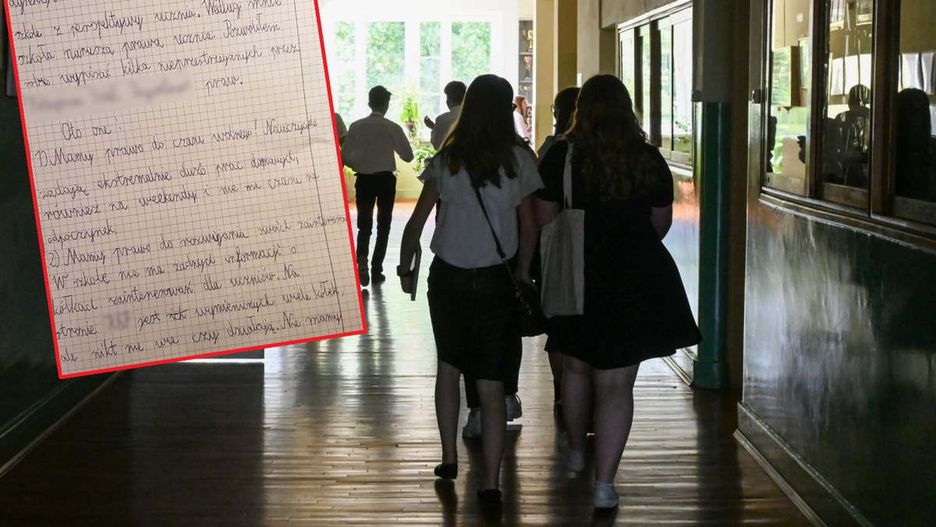 szkole z perspektywy ucznia. Według mnie
szkoła narusza prawa ucznia. Pozwoliłem
sobie wypisać kilka nieprzestrzeganych przez
praw.
Oto one:
1) Mamy prawo do czasu wolnego. Nauczyciele
zadają ekstremalnie dużo prac domowych,
również na weekendy i nie ma czasu na
odpoczynek.
2) Mamy prawo do rozwijania swoich zainteresowań.
W szkole nie ma żadnych informacji o
kółkach zainteresowań dla uczniów. Na
stronie
jest wymienionych wiele kółek,
ale nikt nie wie czy działają. Nie mamy